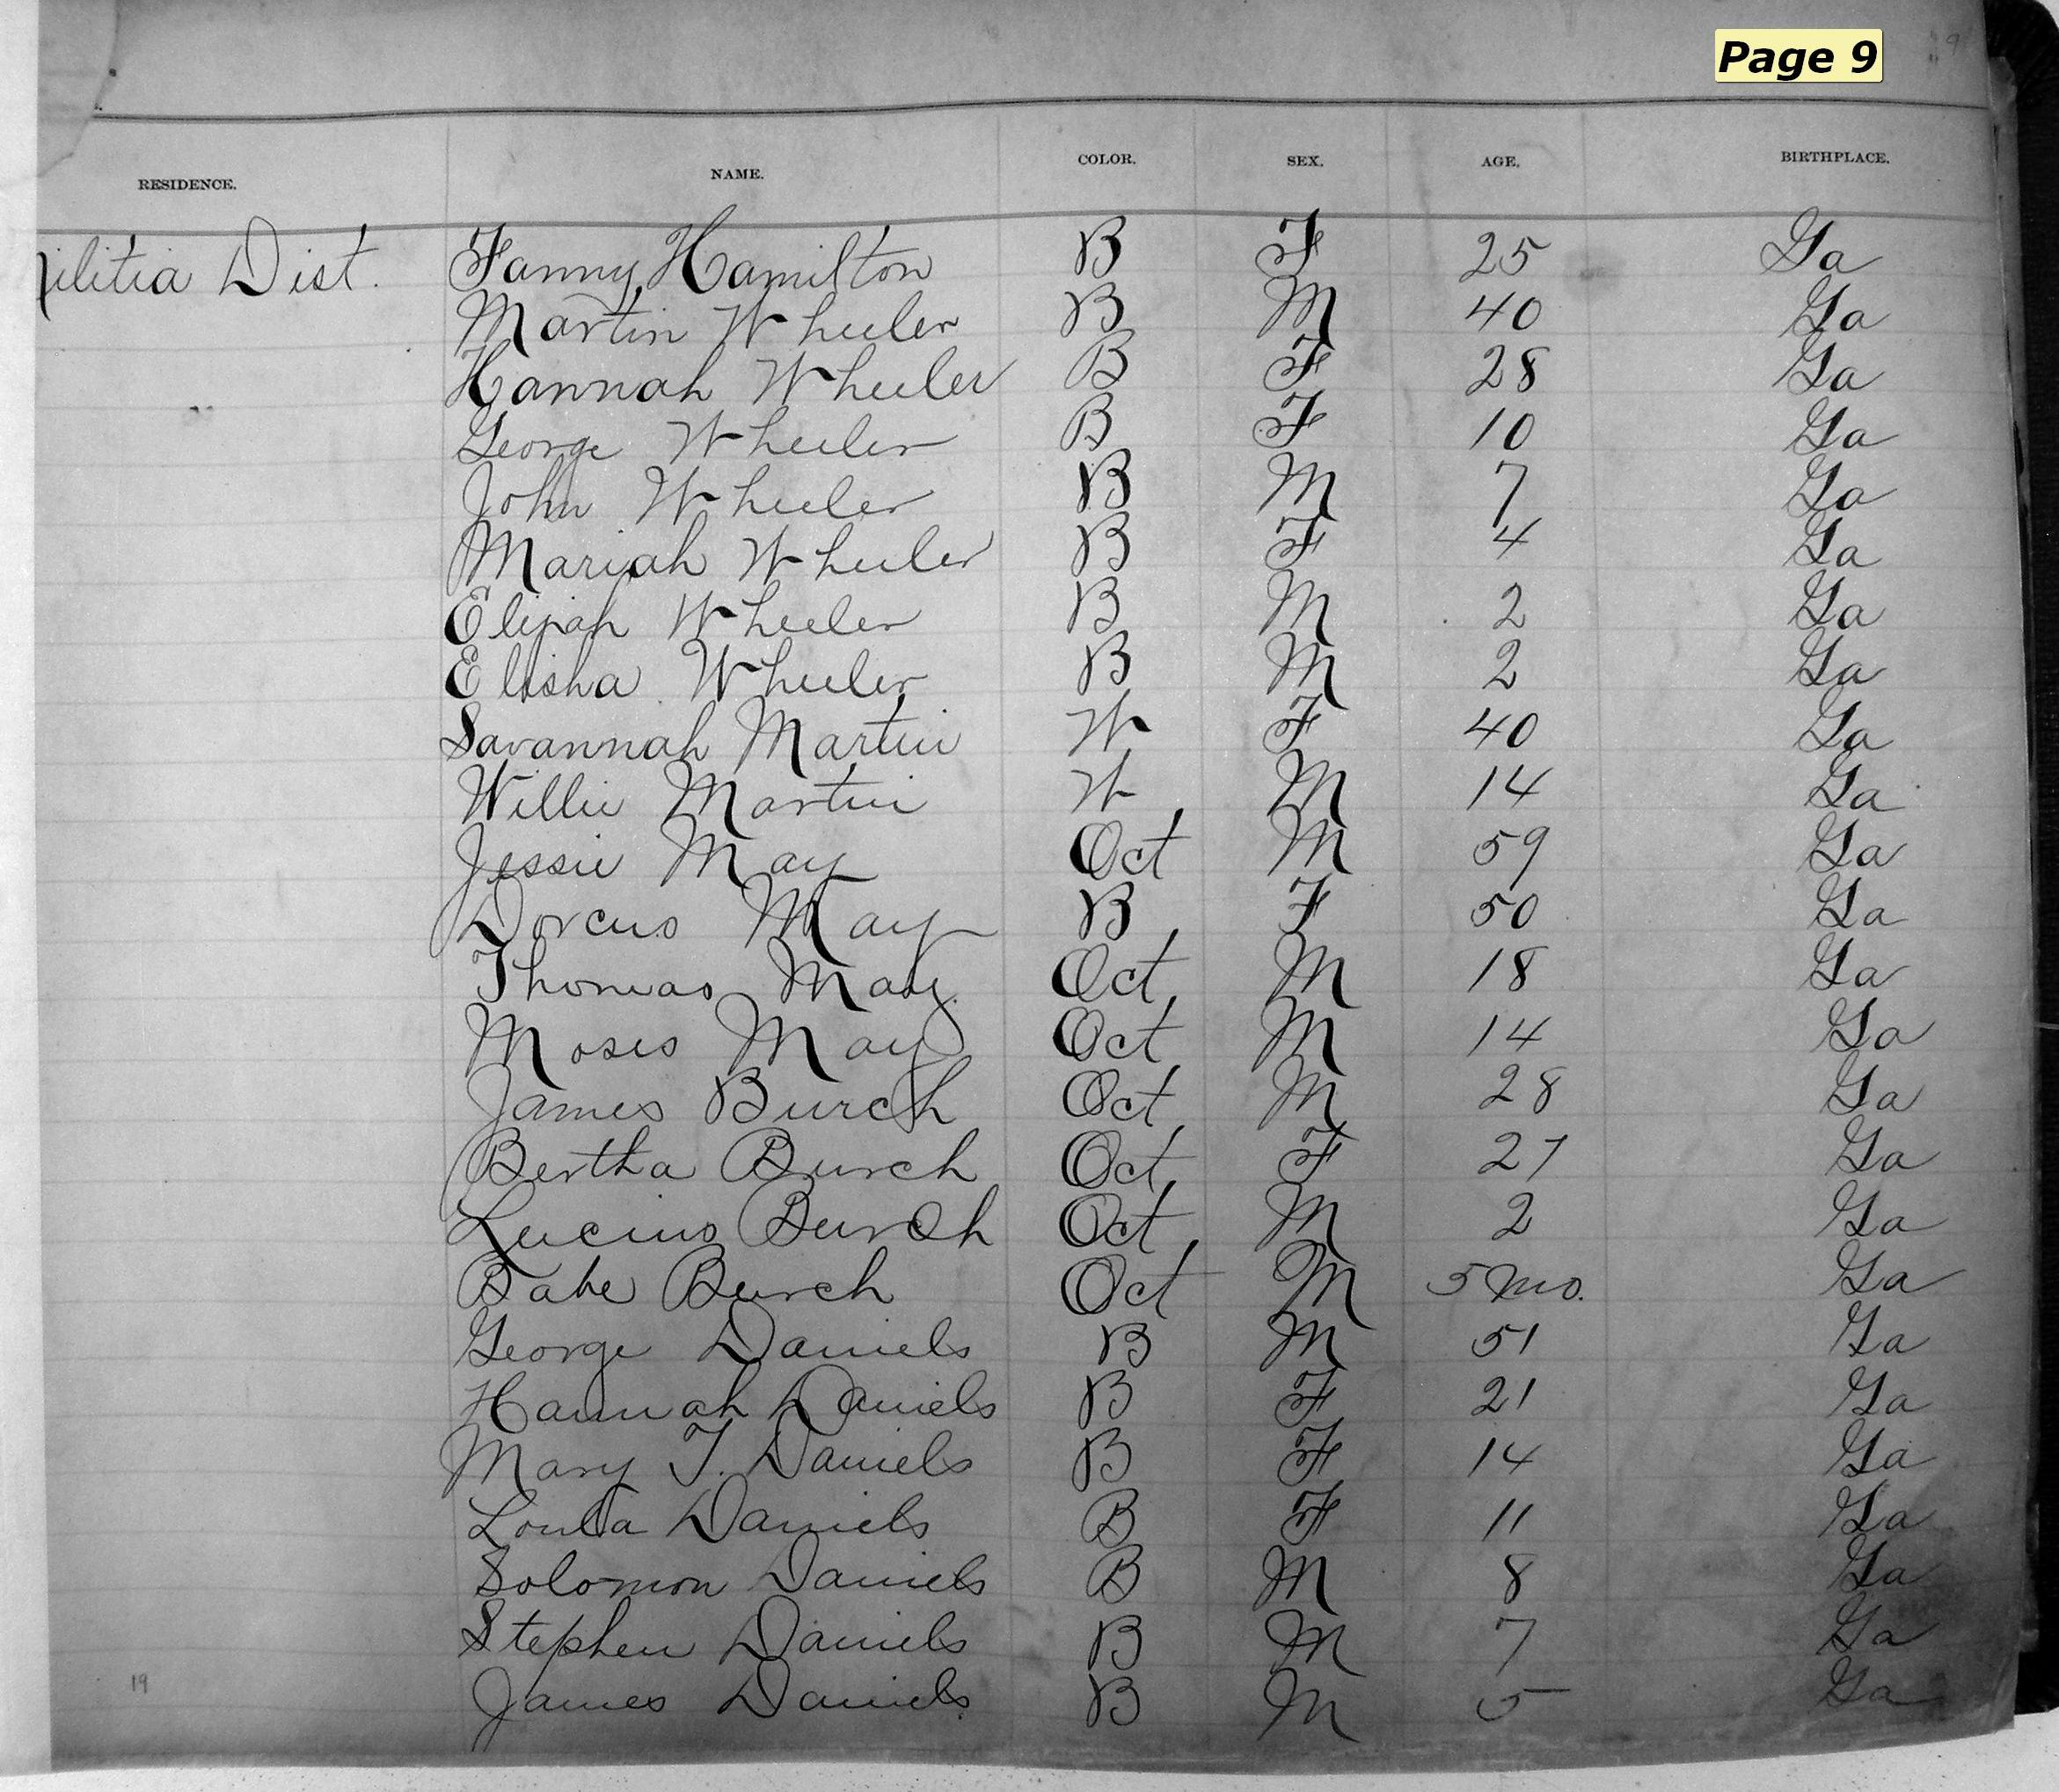 Page 9
RESIDENCE. NAME. COLOR. SEX. AGE. BIRTHPLACE.
ilitia Dist. Fanny Hamilton B F 25 Ga
Martin Wheeler B M 40 Ga
Hannah Wheeler B F 28 Ga
George Wheeler B F 10 Ga
John Wheeler B M 7 Ga
Mariah Wheeler B F 4 Ga
Elijah Wheeler B M 2 Ga
Elisha Wheeler B M 2 Ga
Savannah Martin W F 40 Ga
Willie Martin W M 14 Ga
Jessie May Oct M 59 Ga
Dorcus May B F 50 Ga
Thomas May Oct M 18 Ga
Moses May Oct M 14 Ga
James Burch Oct M 28 Ga
Bertha Burch Oct F 27 Ga
Lucius Burch Oct M 2 Ga
Babe Burch Oct M 5 mo. Ga
George Daniels B M 51 Ga
Hannah Daniels B F 21 Ga
Mary T. Daniels B F 14 Ga
Daniels B F 11 Ga
Solomon Daniels B M 8 Ga
Stephen Daniels B M 7 Ga
19 James Daniels B M 5 Ga